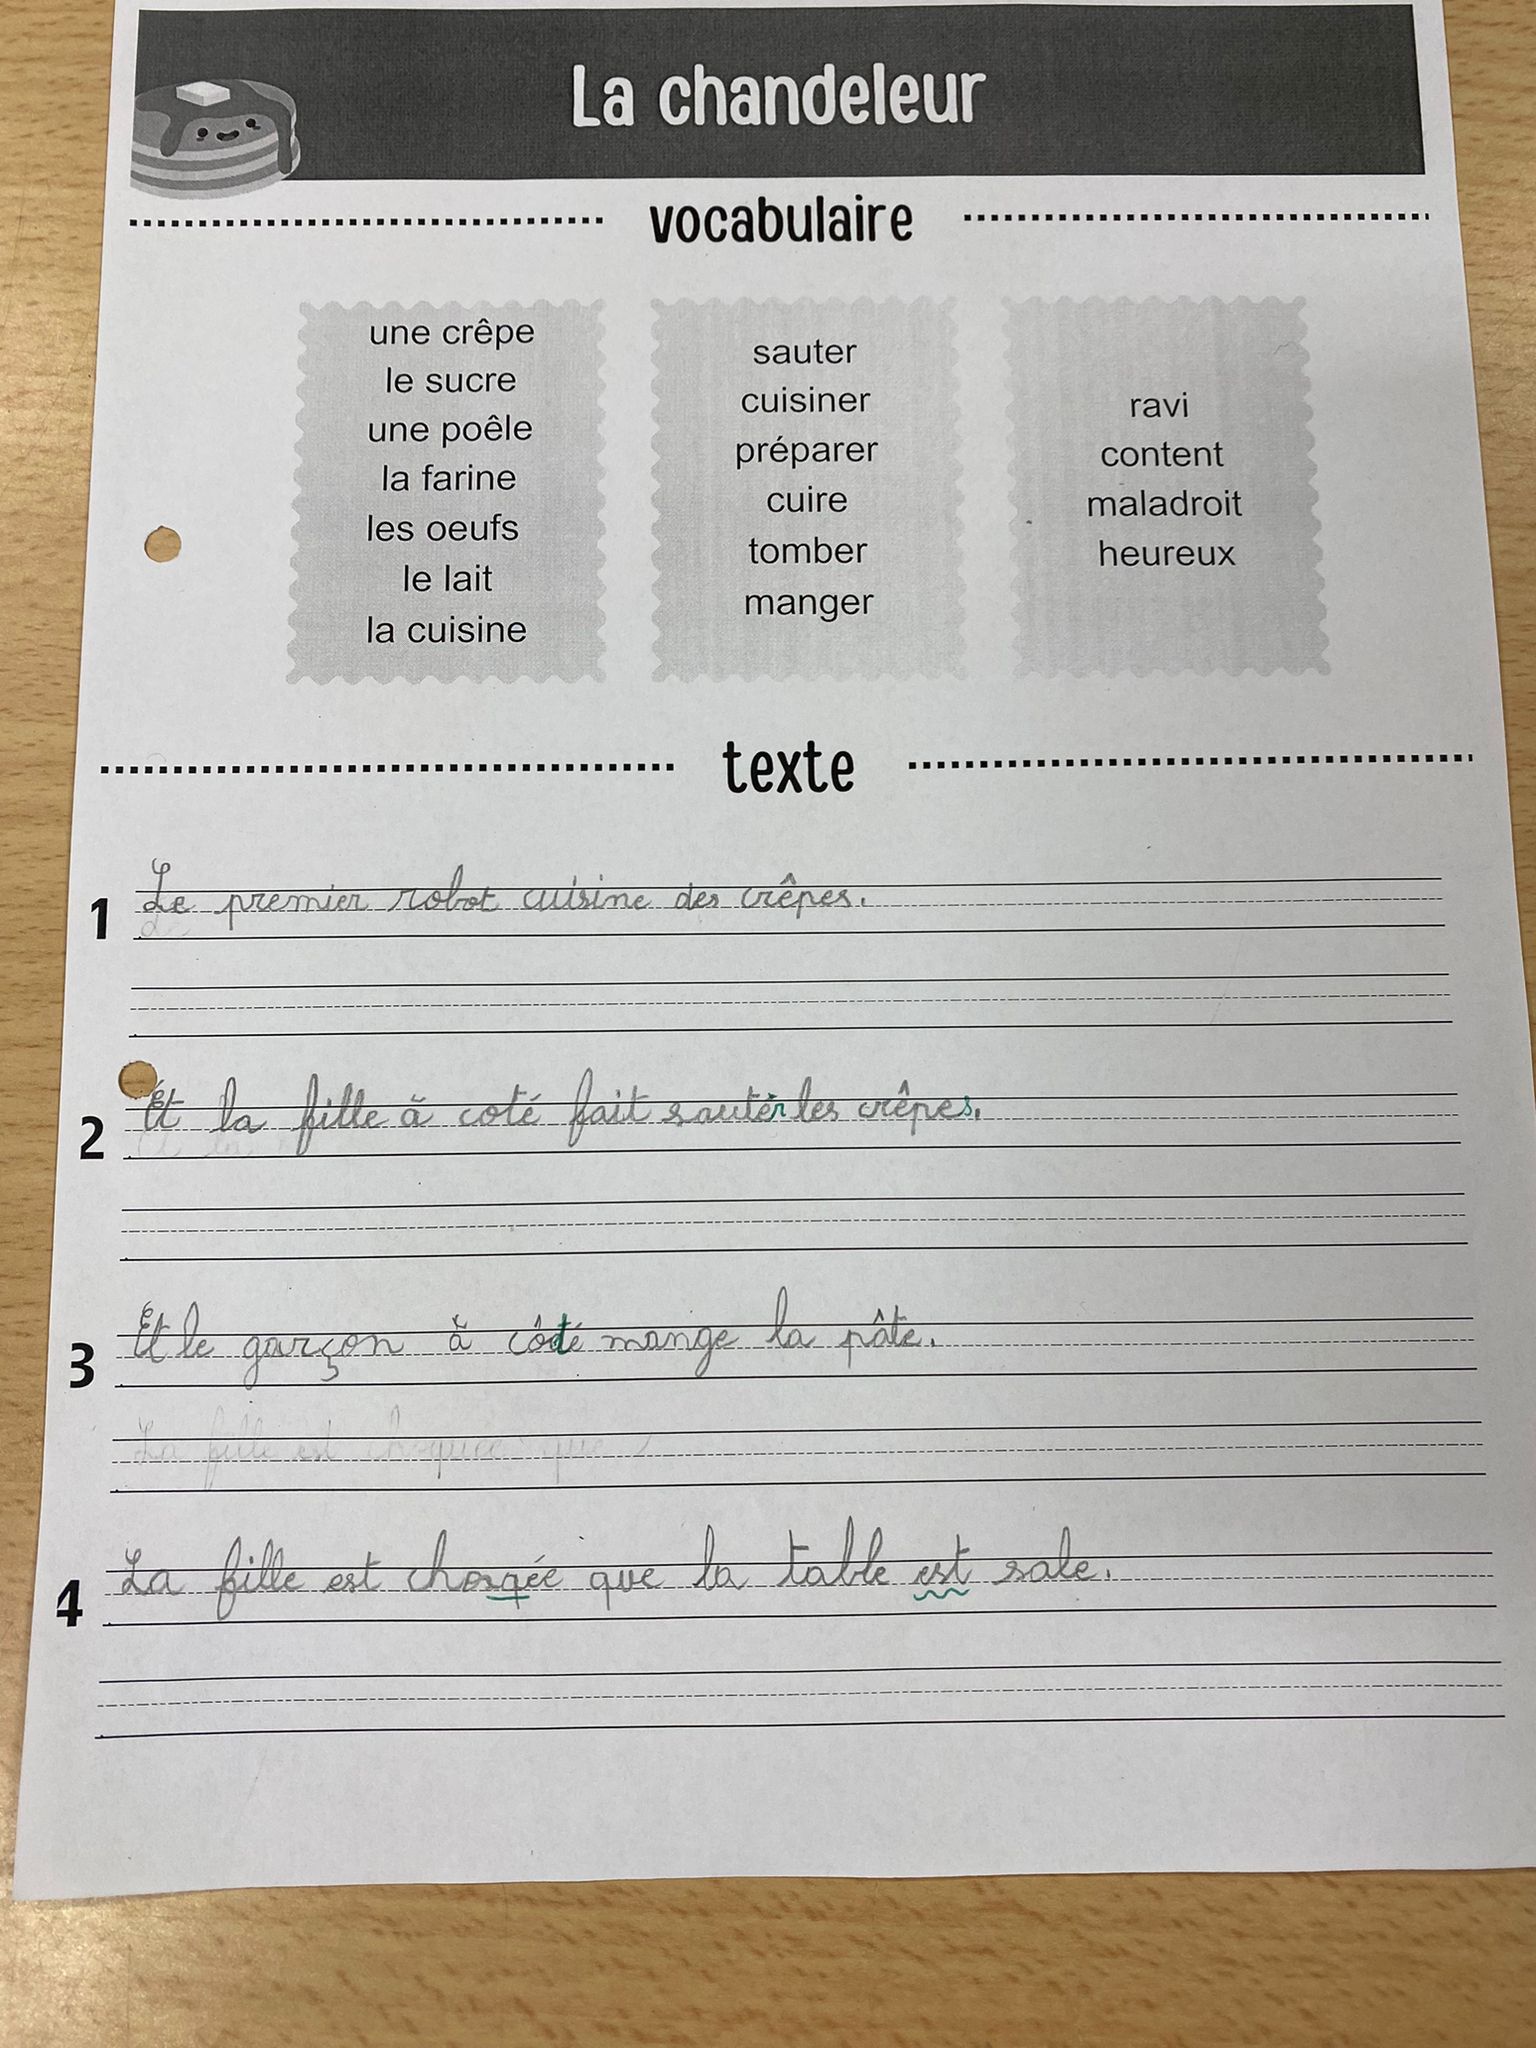 La chandeleur
vocabulaire
une crêpe
le sucre
une poêle
la farine
les oeufs
le lait
la cuisine
sauter
cuisiner
préparer
cuire
tomber
manger
ravi
content
maladroit
heureux
texte
1 Le premier robot cuisine des crêpes.
2 Et la fille à coté fait sauter les crêpes.
3 Et le garçon à côté mange la pâte.
La fille est choquée que
4 La fille est choqée que la table est sale.